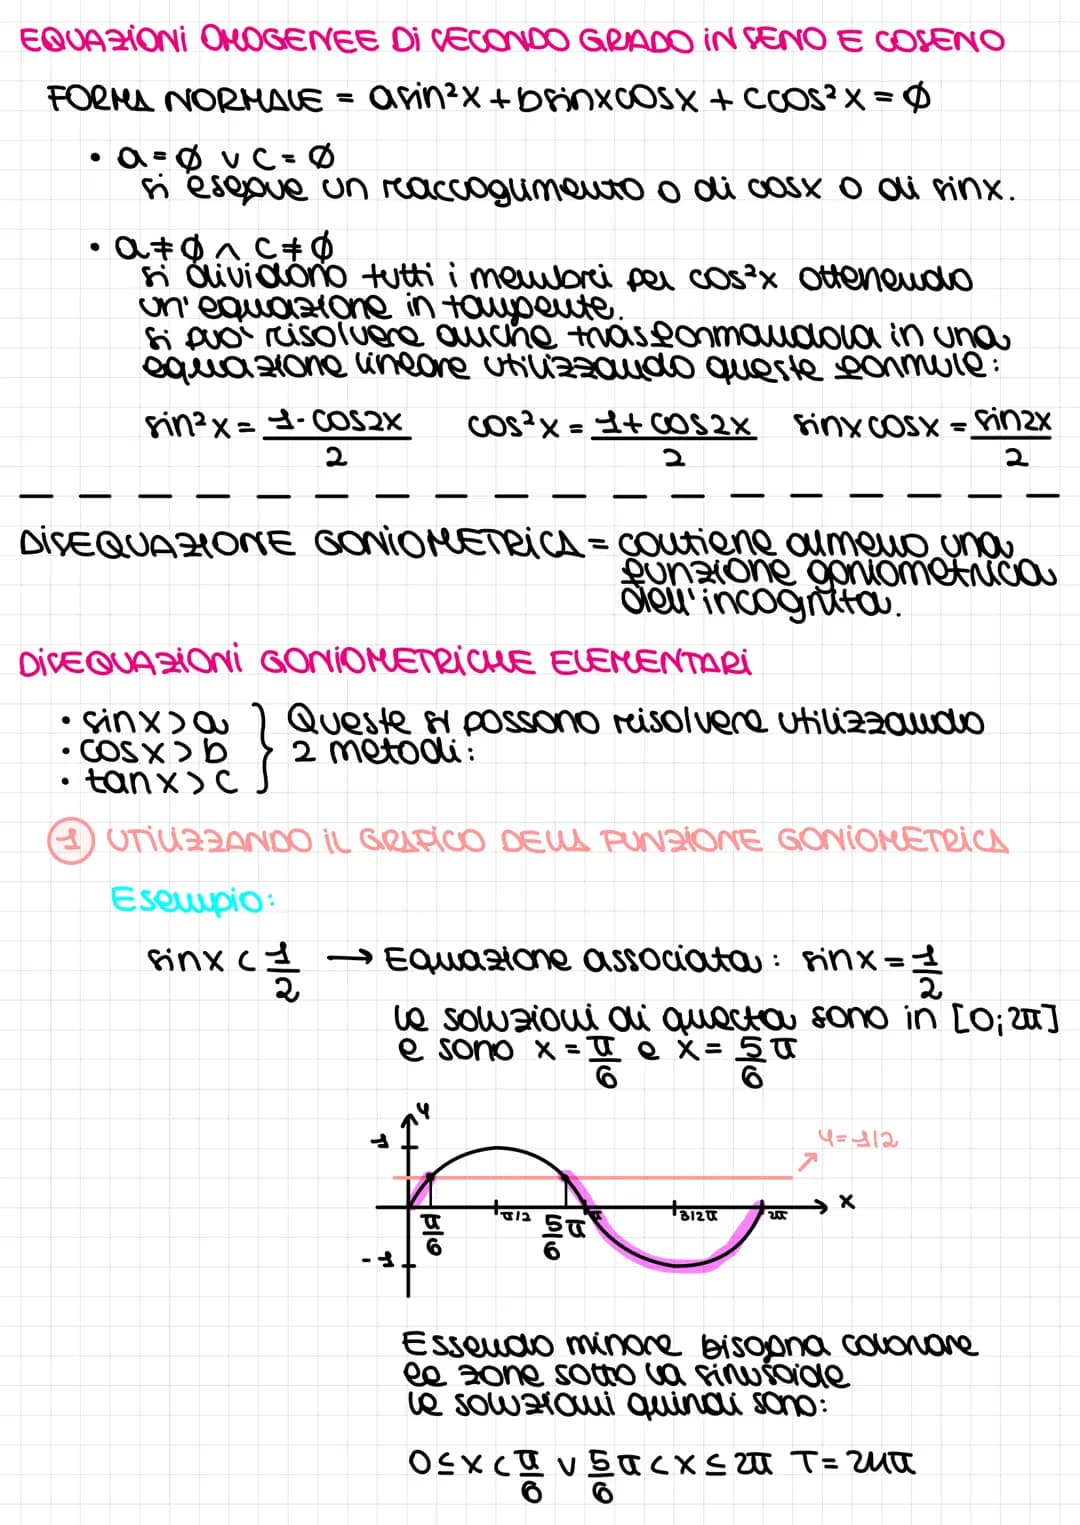 EQUAZIONI OMOGENEE DI SECONDO GRADO IN SENO E COSENO
FORMA NORMALE = asin²x + bsinxcosx + ccos²x = Ø
• a = Ø ∨ c = Ø
si esegue un raccoglimento o di cosx o di sinx.
• a ≠ Ø ∧ c ≠ Ø
si dividono tutti i membri per cos²x ottenendo
un'equazione in tangente.
si può risolvere anche trasformandola in una
equazione lineare utilizzando queste formule:
sin²x = 1 - cos2x / 2    cos²x = 1 + cos2x / 2    sinxcosx = sin2x / 2
DISEQUAZIONE GONIOMETRICA = contiene almeno una
funzione goniometrica
dell'incognita.
DISEQUAZIONI GONIOMETRICHE ELEMENTARI
• sinx > a } Queste si possono risolvere utilizzando
• cosx > b 2 metodi:
• tanx > c
1 UTILIZZANDO IL GRAFICO DELLA FUNZIONE GONIOMETRICA
Esempio:
sinx < 1/2 → Equazione associata: sinx = 1/2
le soluzioni di questa sono in [0; 2π]
e sono x = π/6 e x = 5/6 π
y
1
y = 1/2
x
π/6 π/2 5/6 π π 3/2π 2π
-1
Essendo minore bisogna colorare
le zone sotto la sinusoide
le soluzioni quindi sono:
0 ≤ x < π/6 ∨ 5/6 π < x ≤ 2π T = 2kπ